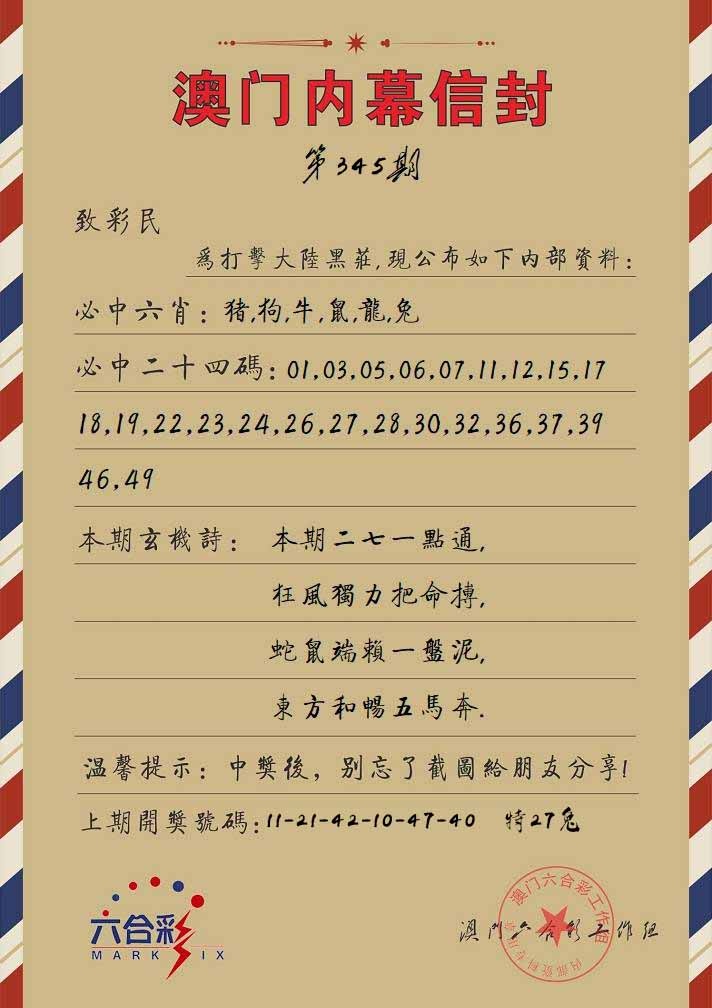 澳门内幕信封
第345期
致彩民
爲打擊大陸黑莊,現公布如下内部資料:
必中六肖:猪,狗,牛,鼠,龍,兔
必中二十四碼:01,03,05,06,07,11,12,15,17
18,19,22,23,24,26,27,28,30,32,36,37,39
46,49
本期玄機詩: 本期二七一點通,
狂風獨力把命摶,
蛇鼠端賴一盤泥,
東方和暢五馬奔.
温馨提示:中獎後,别忘了截圖給朋友分享!
上期開獎號碼:11-21-42-10-47-40 特27兔
六合彩
MARK SIX
澳门六合彩工作组
澳门六合彩工作组